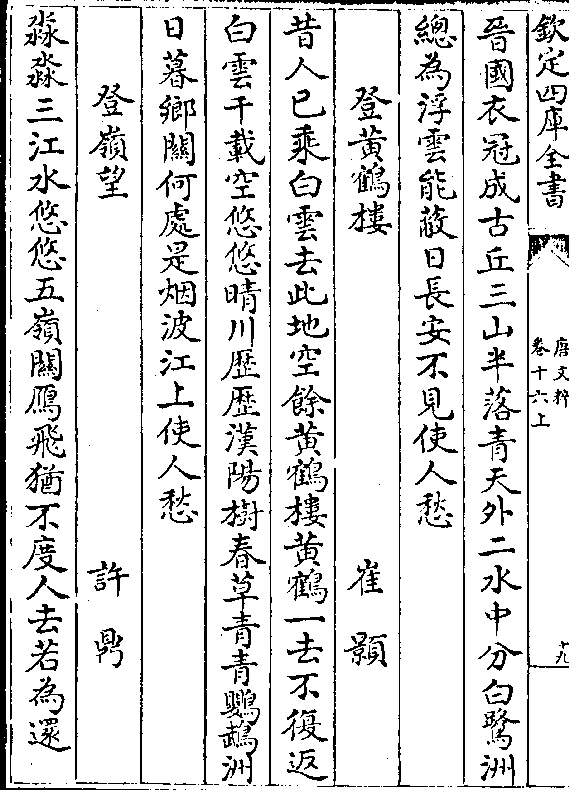 欽定四庫全書
唐文粹
卷十六上
十九
晉國衣冠成古丘三山半落青天外二水中分白鷺洲
總為浮雲能蔽日長安不見使人愁
登黃鶴樓 崔顥
昔人已乘白雲去此地空餘黃鶴樓黃鶴一去不復返
白雲千載空悠悠晴川歷歷漢陽樹春草青青鸚鵡洲
日暮鄉關何處是烟波江上使人愁
登嶺望 許鼎
淼淼三江水悠悠五嶺關鴈飛猶不度人去若為還